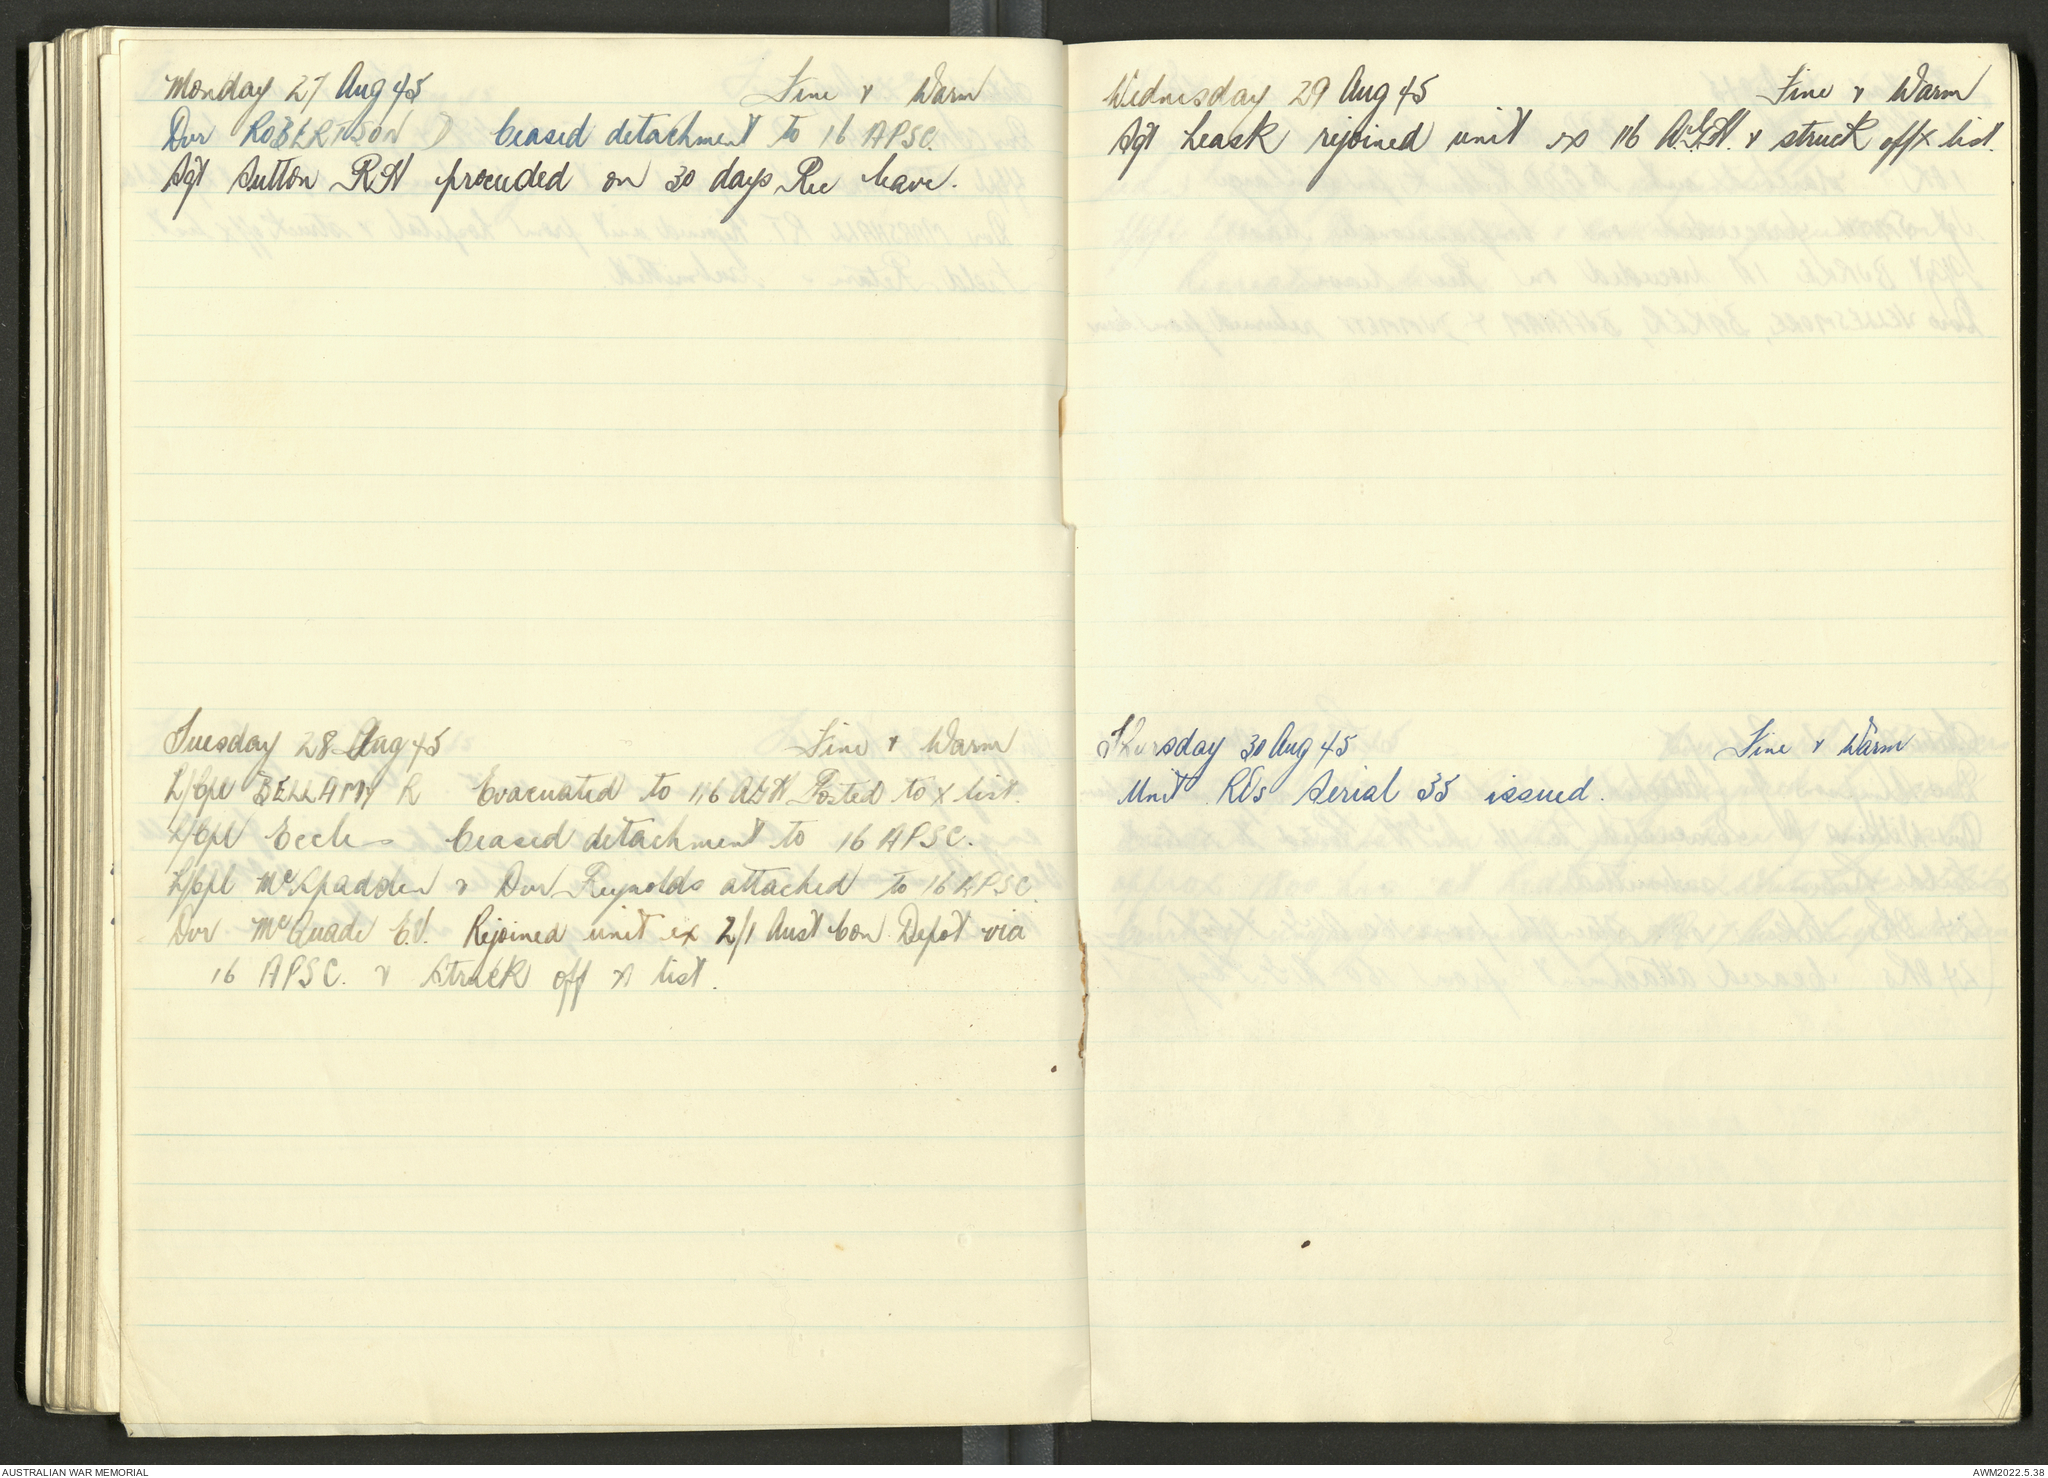 Monday 27 Aug 45 Fine & Warm
Dvr ROBERTSON D ceased detachment to 16 APSC.
Sgt Sutton RH proceeded on 30 days Rec leave.
Tuesday 28 Aug 45 Fine & Warm
L/Cpl BELLAMY R Evacuated to 116 AGH Posted to X list.
L/Cpl Eccles ceased detachment to 16 APSC.
L/Cpl McSpadden & Dvr Reynolds attached to 16 APSC.
Dvr McQuade E.J. Rejoined unit ex 2/1 Aust Con Depot via
16 APSC. & struck off X list.
Wednesday 29 Aug 45 Fine & Warm
Sgt Leask rejoined unit ex 116 A.G.H. & struck off X list.
Thursday 30 Aug 45 Fine & Warm
Unit ROs Serial 35 issued.
AUSTRALIAN WAR MEMORIAL
AWM2022.5.38